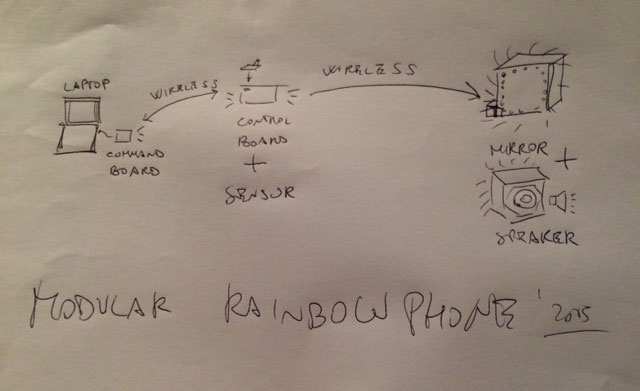 LAPTOP
COMMAND
BOARD
WIRELESS
CONTROL
BOARD
+
SENSOR
WIRELESS
MIRROR
+
SPEAKER
MODULAR RAINBOWPHONE '2015